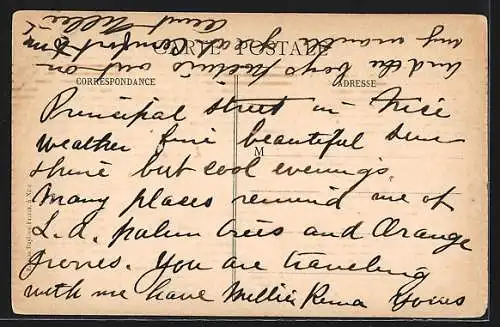 CARTE POSTALE
CORRESPONDANCE
ADRESSE
M
Principal street in Nice
weather fine beautiful sun
shine but cool evenings.
Many places remind me of
L.A. palm trees and Orange
groves. You are traveling
with me have Millie Rena yours
and the boys pictures out on
my mantle great comfort to me
Aunt Nellie